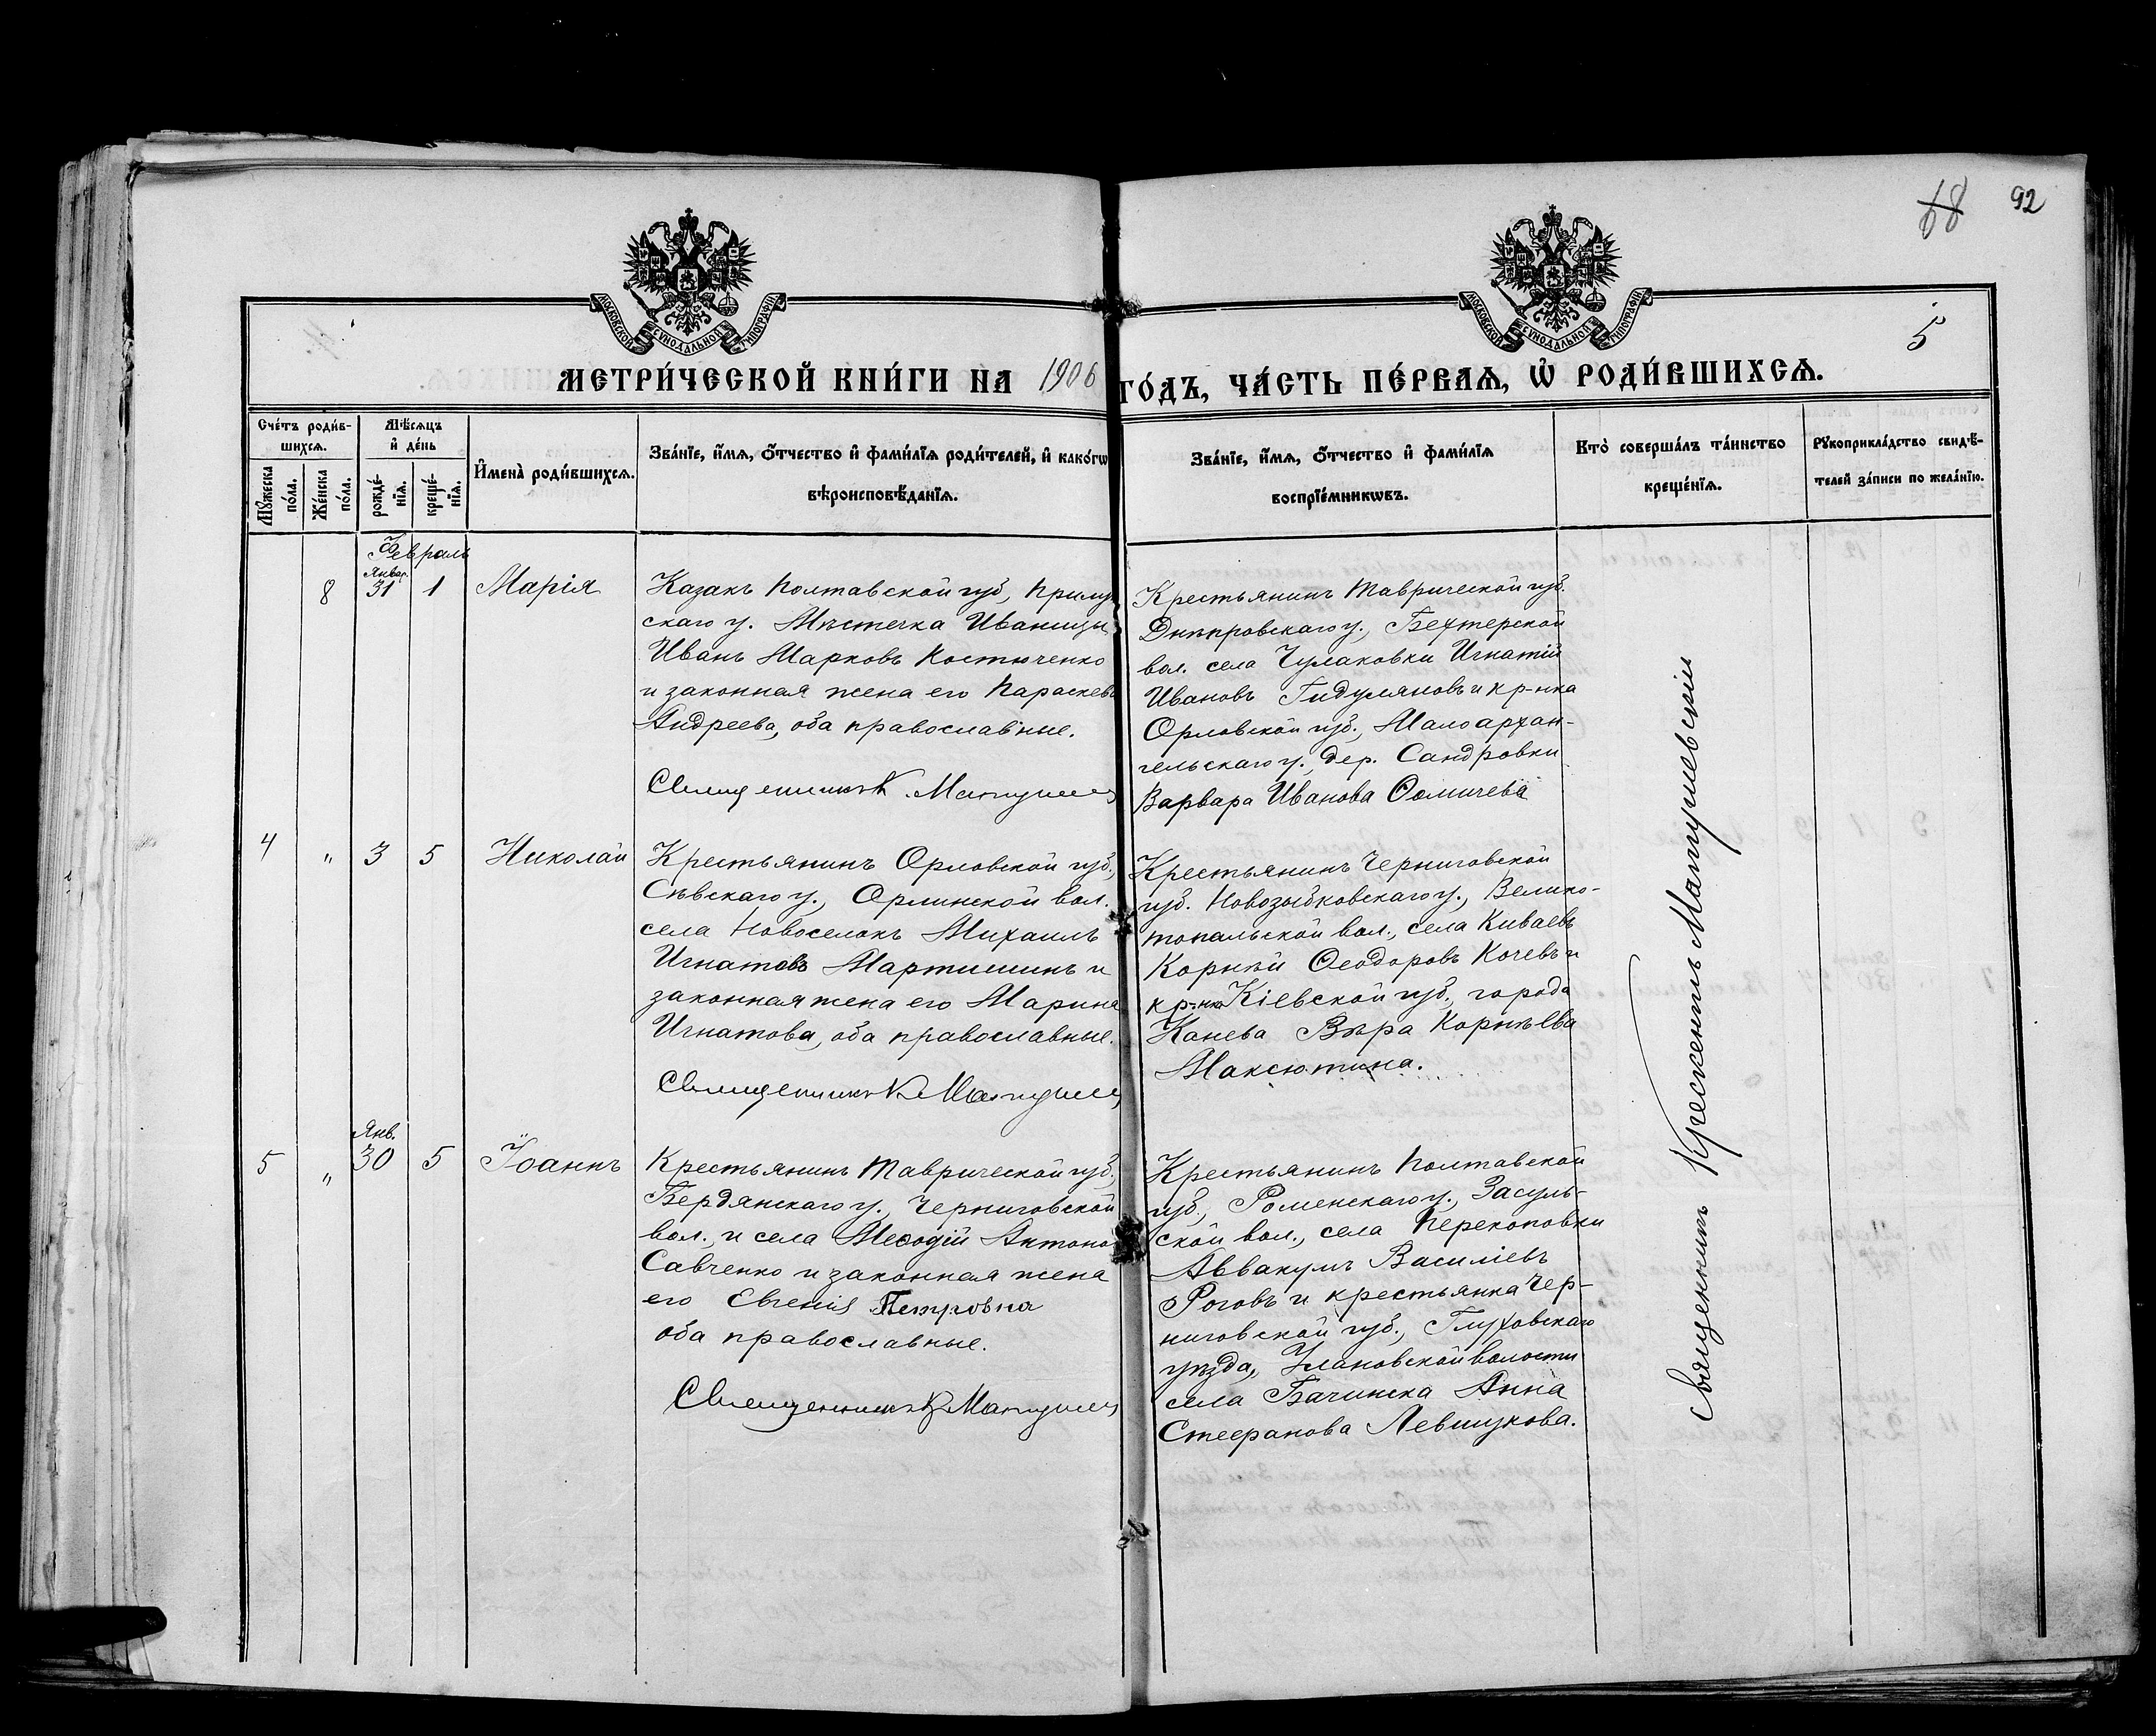 68 92
МОСКОВСКОЙ СѴНОДАЛЬНОЙ ТИПОГРАФІИ
МОСКОВСКОЙ СѴНОДАЛЬНОЙ ТИПОГРАФІИ
5
МЕТРИ́ЧЕСКОЙ КНИ́ГИ НА 1906 ГО́ДЪ, ЧА́СТЬ ПЕ́РВАѦ, Ѡ҆ РОДИ́ВШИХСѦ.
Сче́тъ роди́в-
шихсѧ.
Мꙋжеска по́ла.
Же́нска по́ла.
Мѣ́сѧцъ
и҆ де́нь
рожде́-
нїѧ.
креще́-
нїѧ.
И҆мена̀ роди́вшихсѧ.
Зва́нїе, и҆́мѧ, о҆́тчество и҆ фами́лїѧ роди́телей, и҆ како́гѡ
вѣроисповѣ́данїѧ.
Зва́нїе, и҆́мѧ, о҆́тчество и҆ фами́лїѧ
воспрїе́мникѡвъ.
Кто̀ соверша́лъ та́инство
креще́нїѧ.
Рꙋкоприкла́дство свидѣ́-
телей за́писи по жела́нїю.
Февраль
Январ.
8 31 1 Марія
Казакъ Полтавской губ, Прилук
скаго у. Мѣстечка Иваницы
Иванъ Марковъ Костюченко
и законная жена его Параскева
Андреева, оба православные.
Священникъ К Матушев
Крестьянинъ Таврической губ.
Днѣпровскаго у., Бехтерской
вол. села Чулаковки Игнатій
Ивановъ Гидуляновъ и кр-нка
Орловской губ., Малоархан-
гельскаго у., дер. Сандровки
Варвара Иванова Ѳомичева
4 " 3 5 Николай
Крестьянинъ Орловской губ.,
Сѣвскаго у., Орлинской вол.
села Новоселокъ Михаилъ
Игнатовъ Мартишинъ и
законная жена его Марина
Игнатова, оба православные.
Священникъ К Матушев
Крестьянинъ Черниговской
губ. Новозыбковскаго у., Велико-
топальской вол., села Киваевъ
Корнѣй Ѳеодоровъ Кочевъ и
кр-нка Кіевской губ., города
Канева Вѣра Корнѣева
Максютина.
Янв.
5 " 30 5 Іоаннъ
Крестьянинъ Таврической губ.,
Бердянскаго у., Черниговской
вол., и села Меѳодій Антонов
Савченко и законная жена
его Евгенія Петровна
оба православные.
Священникъ К Матушев
Крестьянинъ Полтавской
губ., Роменскаго у., Засуль-
ской вол., села Перекоповки
Аввакумъ Василіевъ
Роговъ и крестьянка Чер-
ниговской губ., Глуховскаго
уѣзда, Улановской волости
села Бачинска Анна
Стефанова Левшукова.
Священникъ Крескентъ Матушевскій